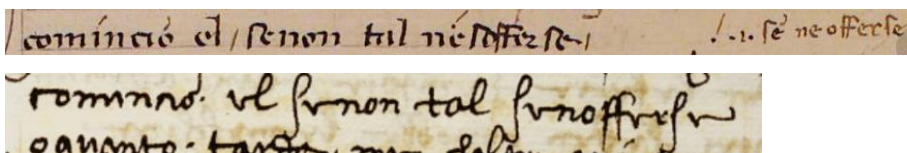 cominciò el / senon tal nesofferse / .i. sē ne offerse
cominciò . el senon tal senofferse